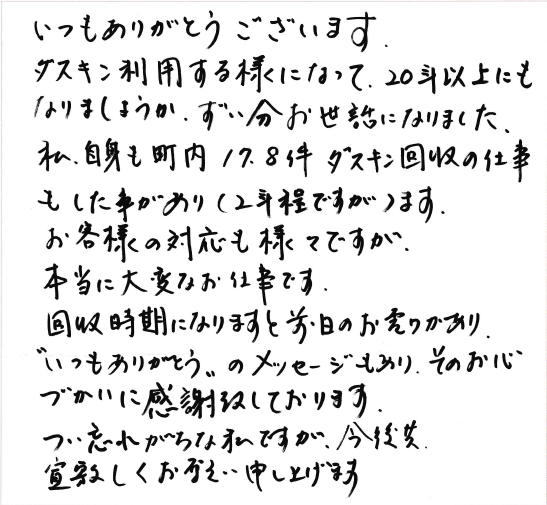 いつもありがとうございます.
ダスキン利用する様になって、20年以上にも
なりましょうか、ずい分お世話になりました、
私、自身も町内17.8件ダスキン回収の仕事
もした事があり(2年程ですが)ます.
お客様の対応も様々ですが、
本当に大変なお仕事です.
回収時期になりますと前日のお電わがあり、
"いつもありがとう〟のメッセージもあり、そのお心
づかいに感謝致しております.
つい忘れがちな私ですが、今後共
宜敷しくお願い申し上げます